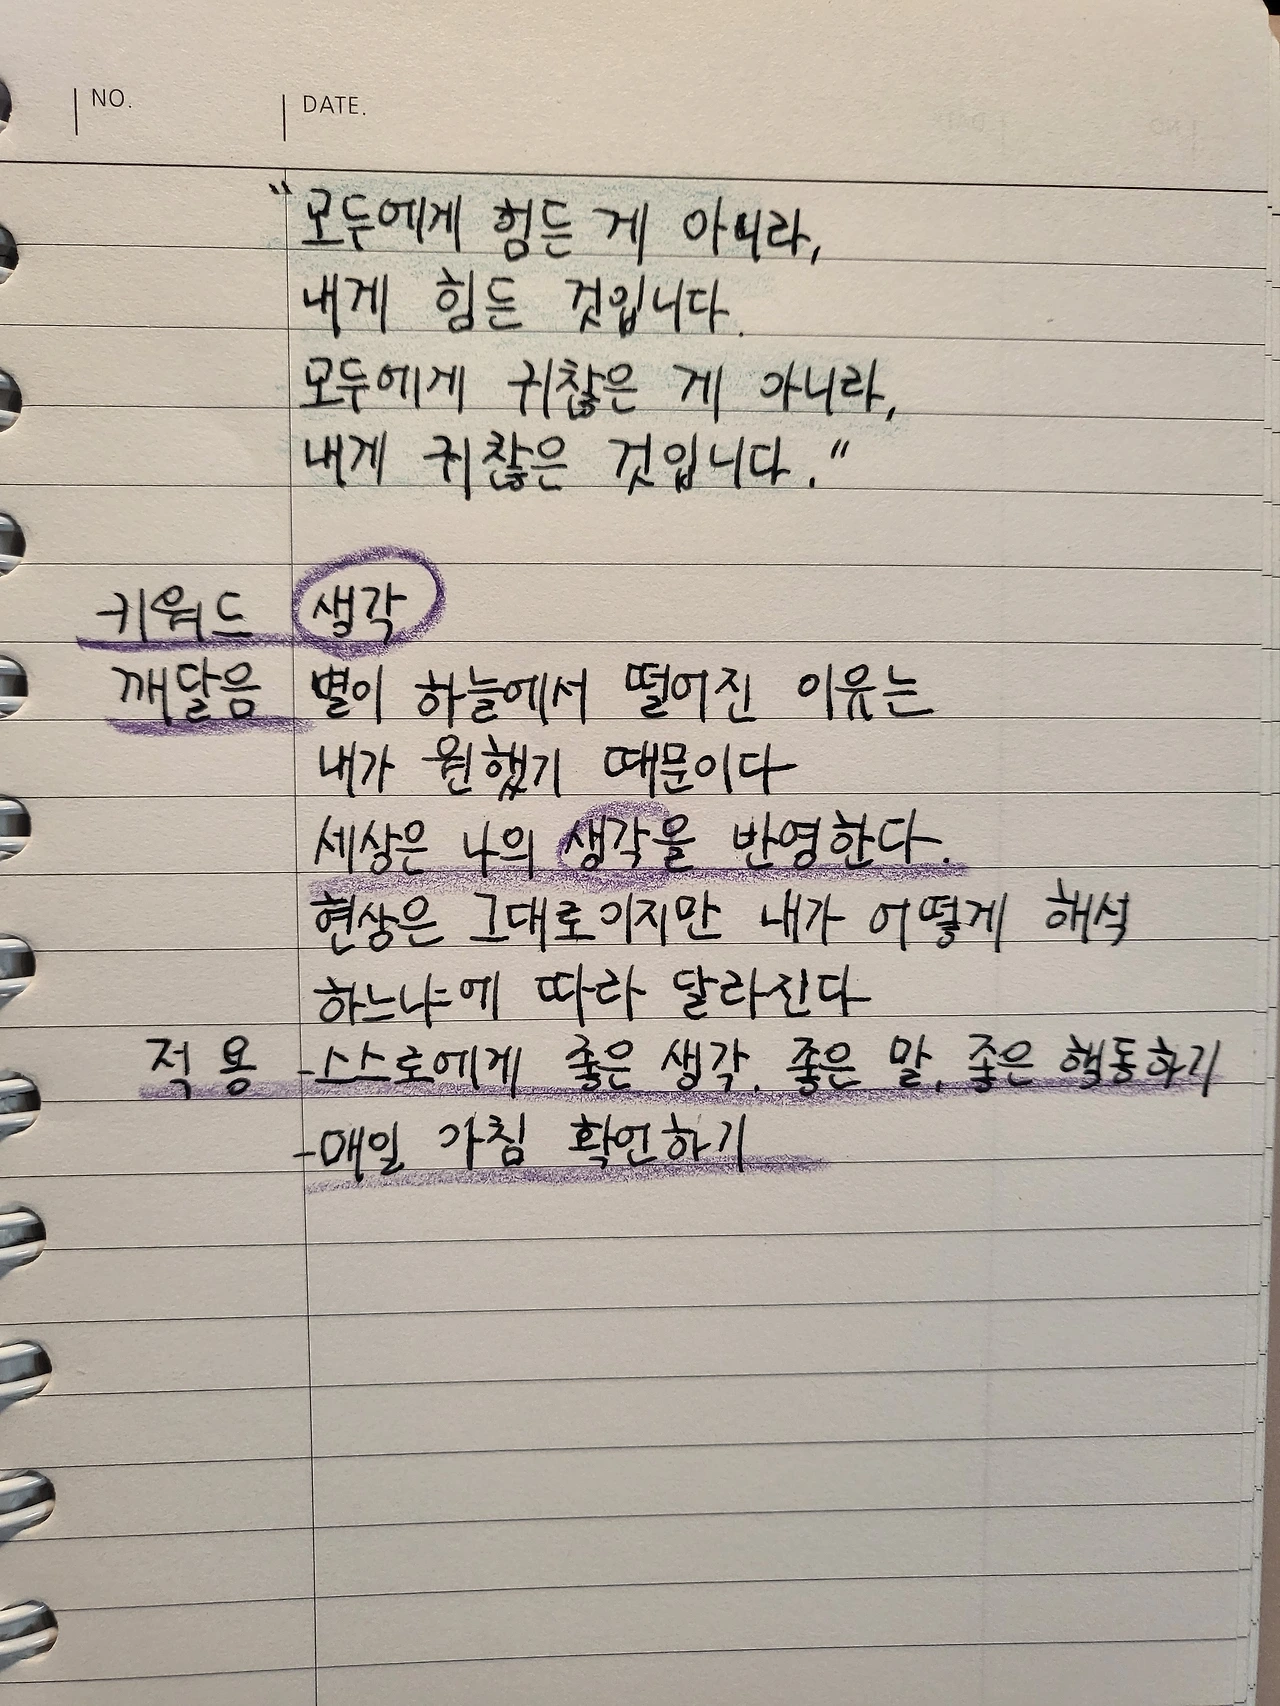 NO. DATE.
"모두에게 힘든 게 아니라,
내게 힘든 것입니다.
모두에게 귀찮은 게 아니라,
내게 귀찮은 것입니다."
키워드 생각
깨달음 별이 하늘에서 떨어진 이유는
내가 원했기 때문이다
세상은 나의 생각을 반영한다.
현상은 그대로이지만 내가 어떻게 해석
하느냐에 따라 달라진다
적용 -스스로에게 좋은 생각, 좋은 말, 좋은 행동하기
-매일 아침 확언하기